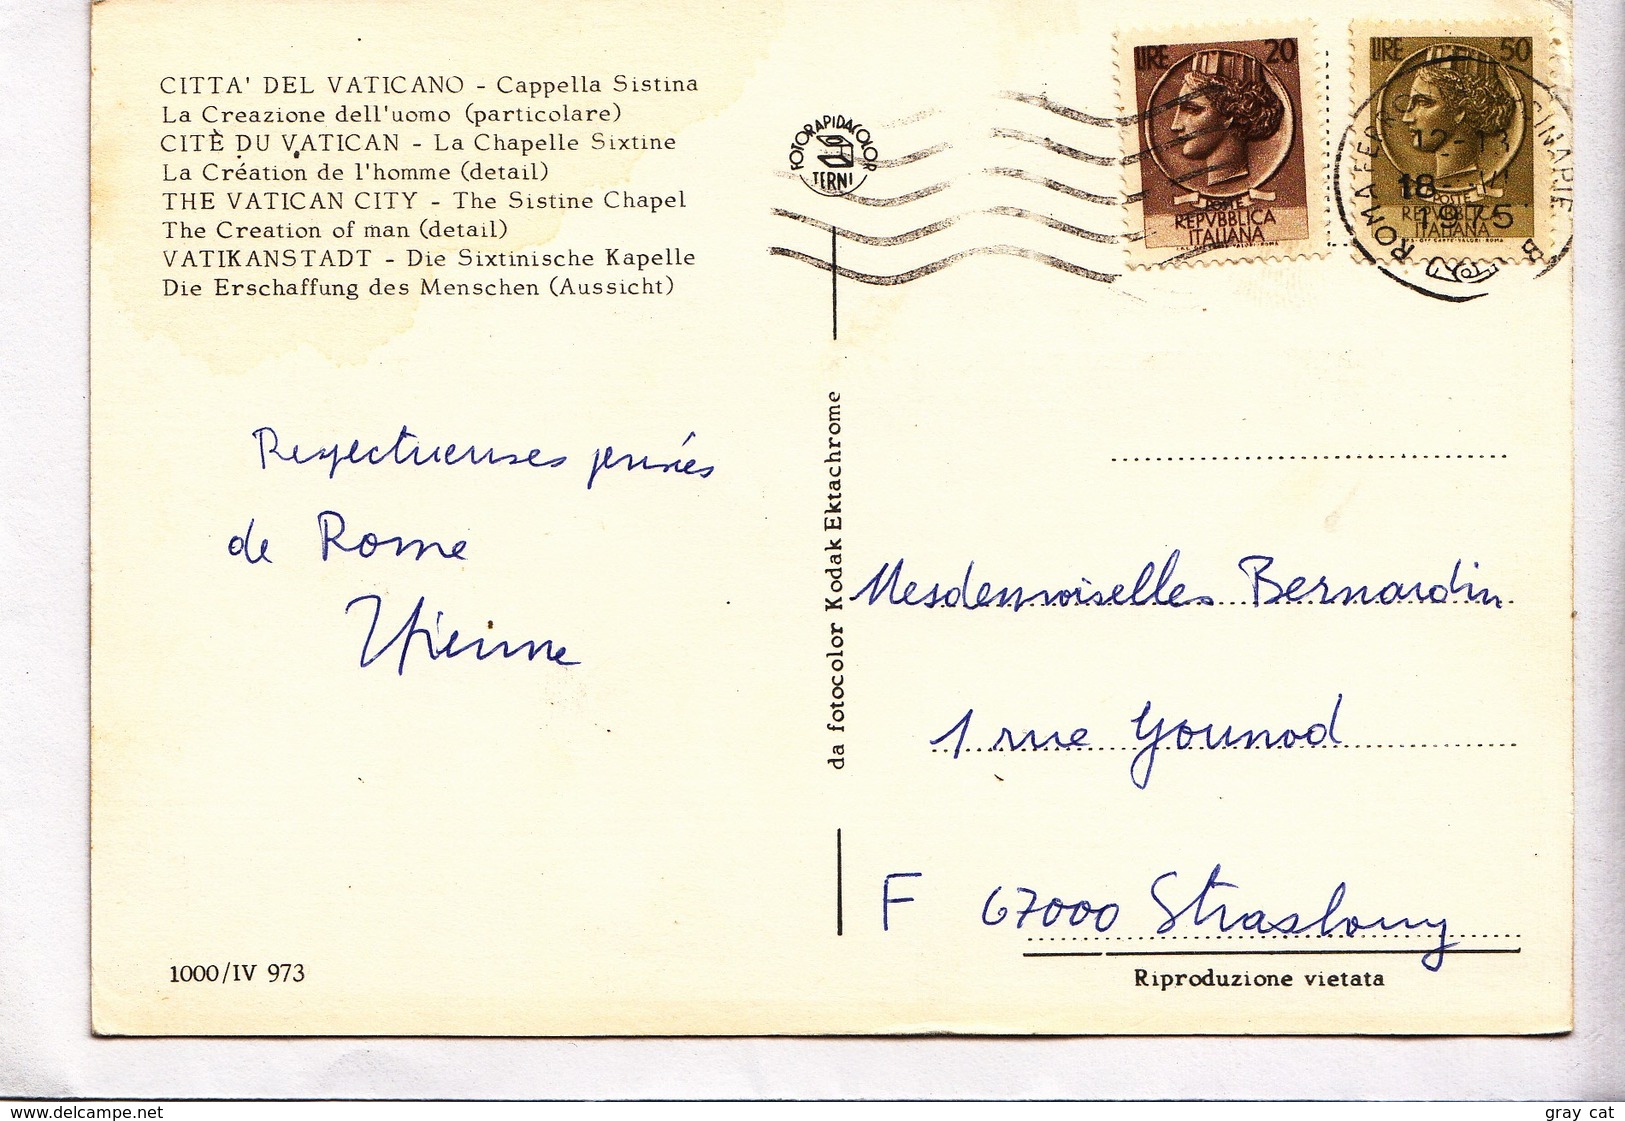 CITTA' DEL VATICANO - Cappella Sistina
La Creazione dell'uomo (particolare)
CITÈ DU VATICAN - La Chapelle Sixtine
La Création de l'homme (detail)
THE VATICAN CITY - The Sistine Chapel
The Creation of man (detail)
VATIKANSTADT - Die Sixtinische Kapelle
Die Erschaffung des Menschen (Aussicht)
FOTORAPIDACOLOR
TERNI
LIRE 20
POSTE
REPVBBLICA
ITALIANA
LIRE 50
POSTE
REPVBBLICA
ITALIANA
ROMA FERR
12-13
18
1975
Respectueuses pensées
de Rome
da fotocolor Kodak Ektachrome
Mesdemoiselles Bernardin
1 rue Gounod
F 67000 Strasbourg
1000/IV 973
Riproduzione vietata
www.delcampe.net
gray cat